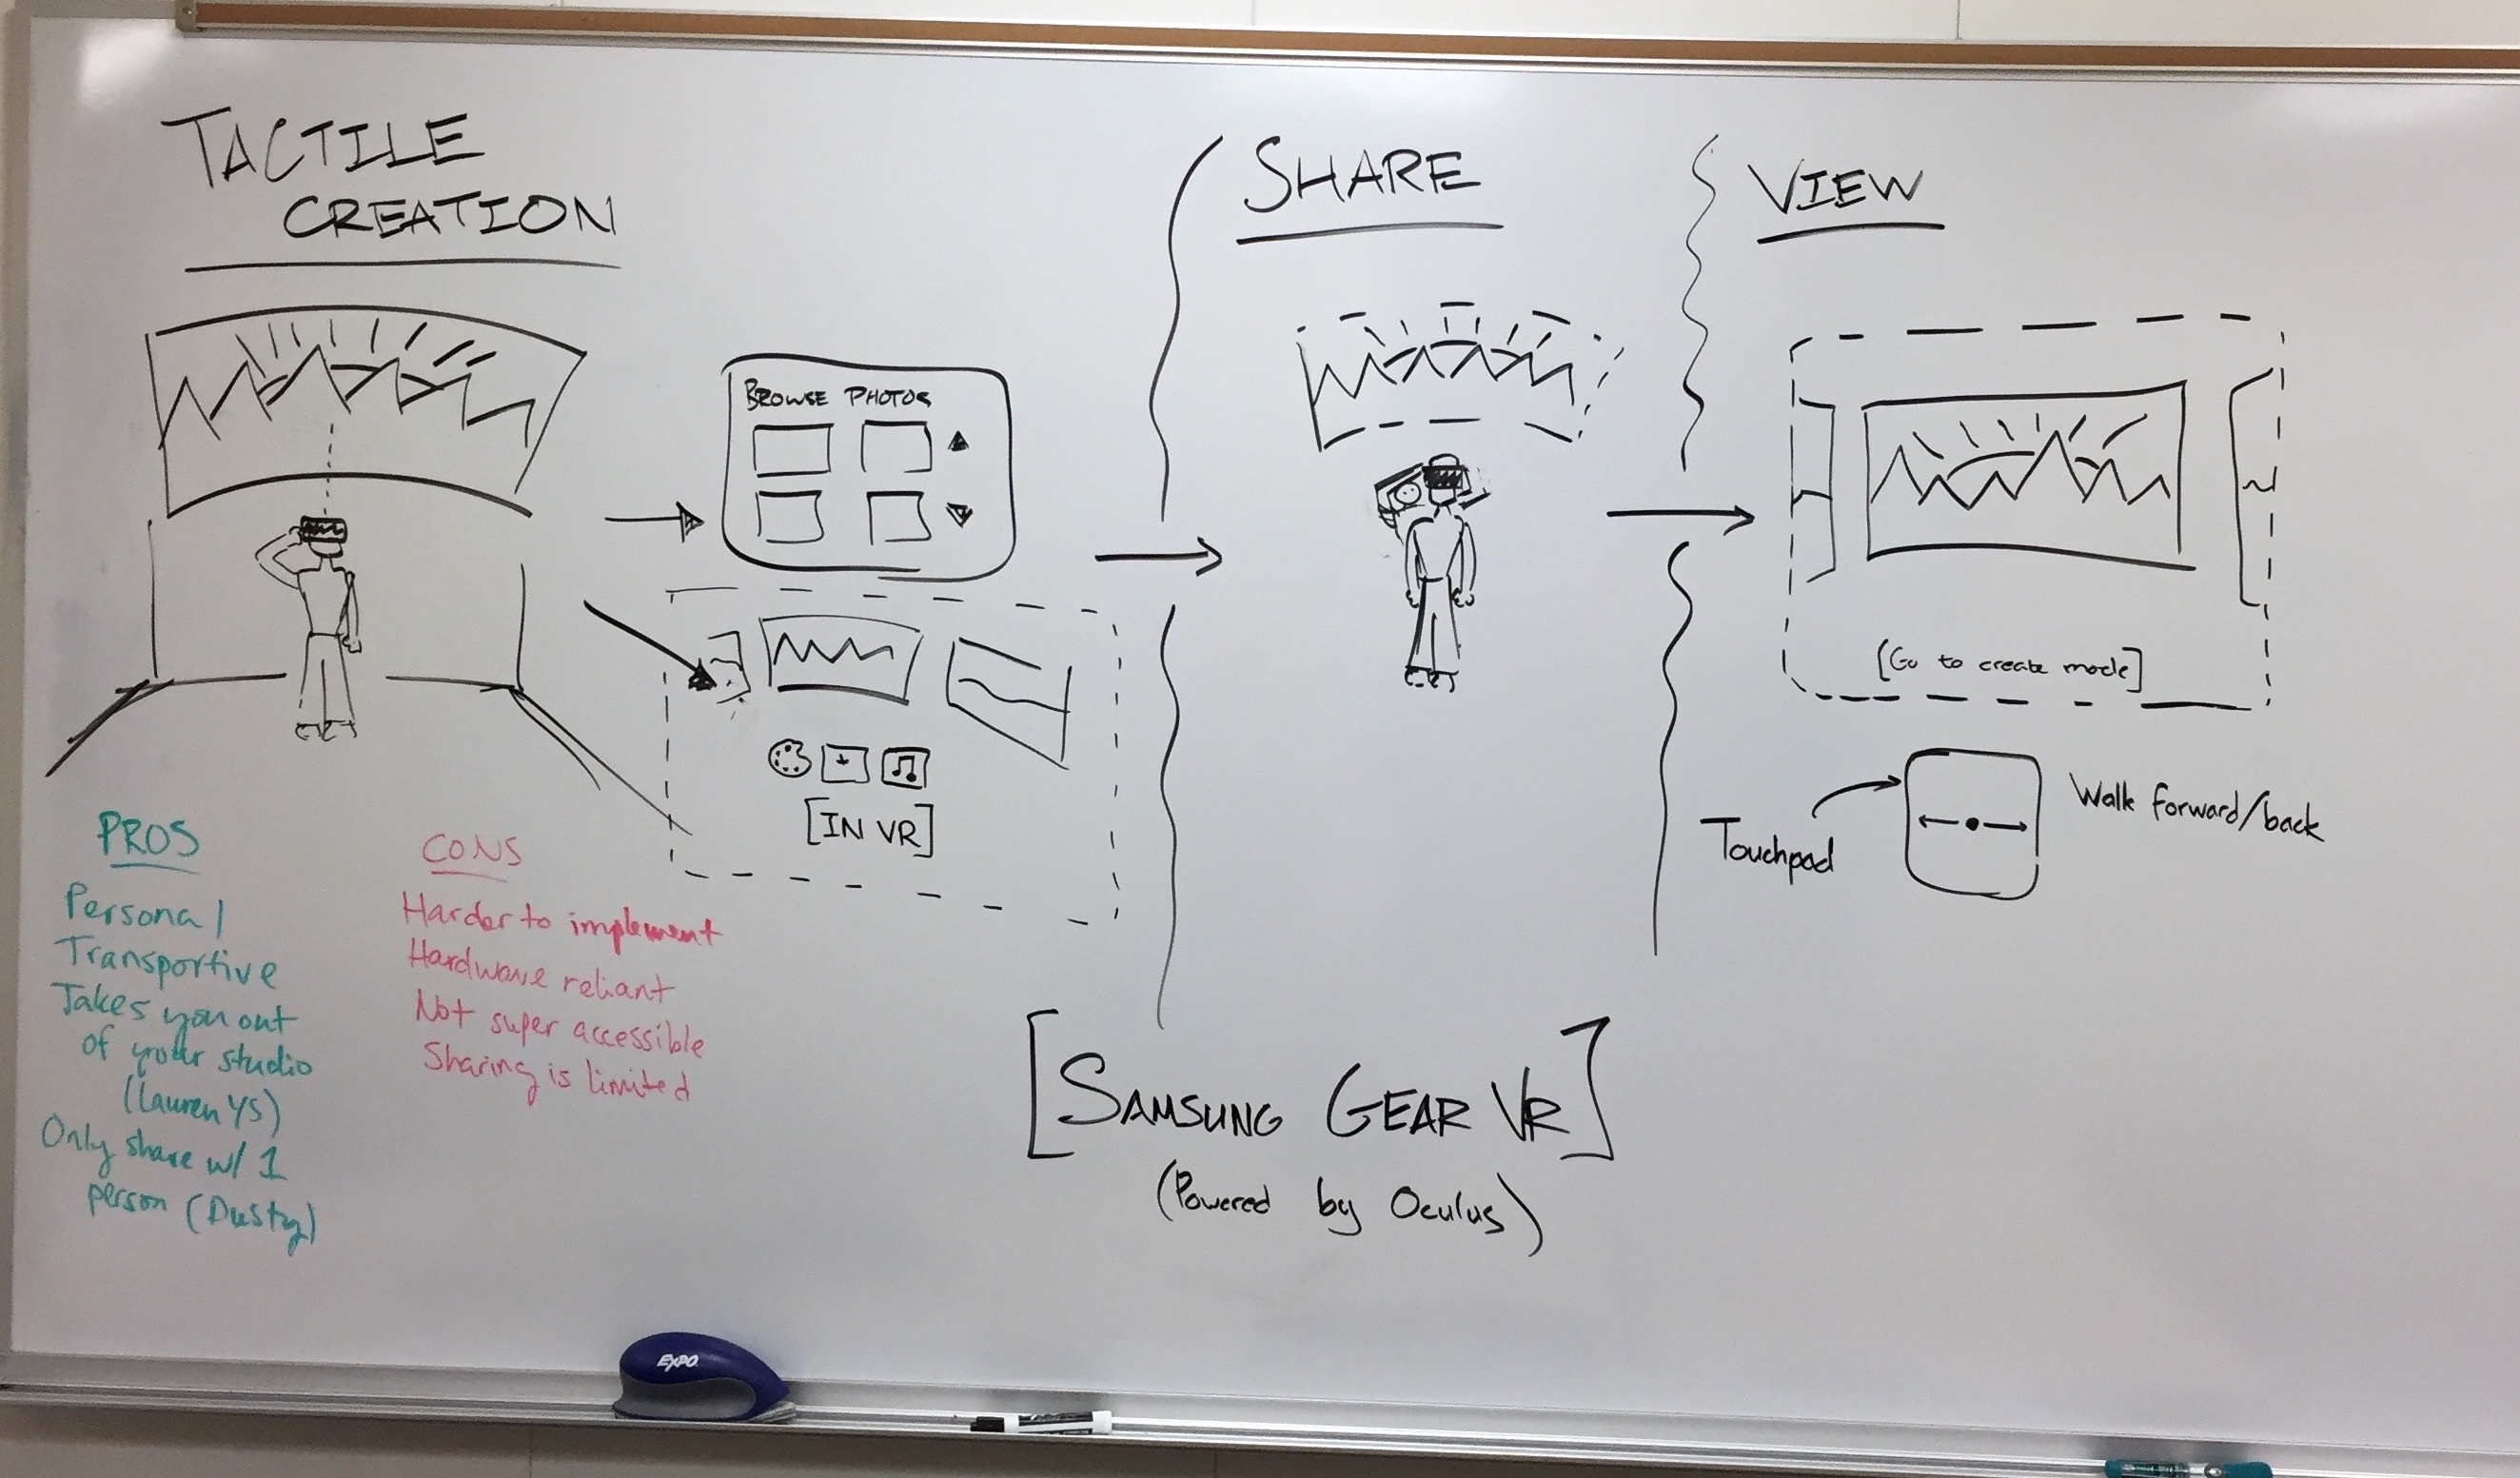 TACTILE
CREATION
BROWSE PHOTOS
[IN VR]
PROS
Personal
Transportive
Takes you out
of your studio
(Lauren YS)
Only share w/ 1
person (Dusty)
CONS
Harder to implement
Hardware reliant
Not super accessible
Sharing is limited
SHARE
VIEW
[Go to create mode]
Touchpad
Walk forward/back
[SAMSUNG GEAR VR]
(Powered by Oculus)
EXPO